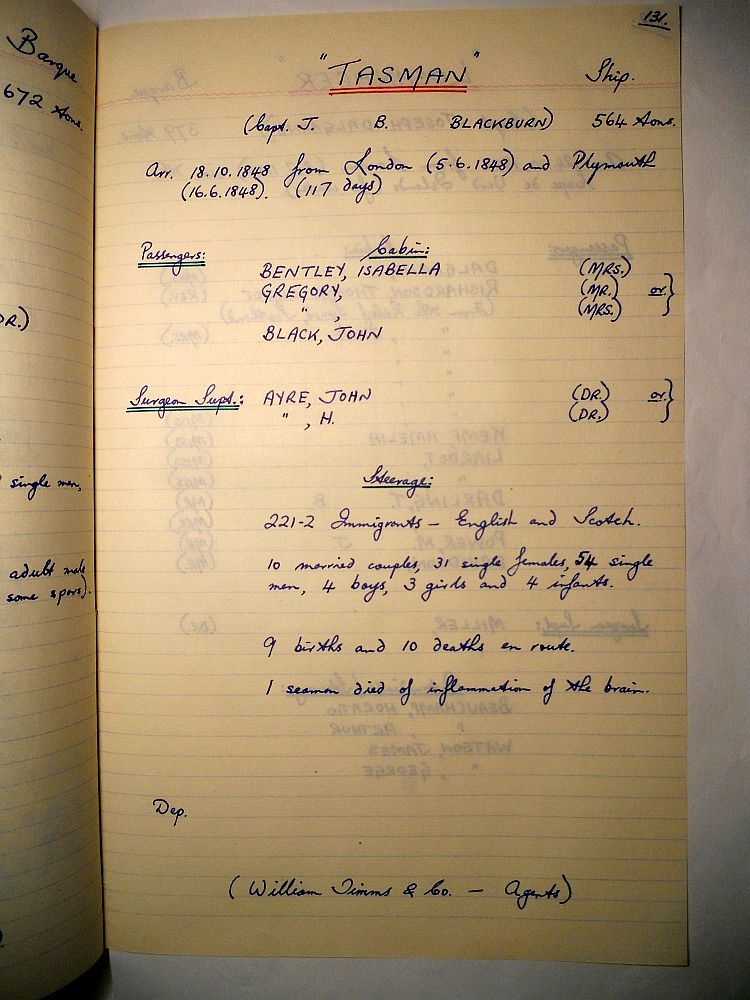 Barque
672 Tons.
DR.)
single men,
adult male
some spars).
131.
"TASMAN" Ship.
(Capt. J. B. BLACKBURN) 564 Tons.
Arr. 18.10.1848 from London (5.6.1848) and Plymouth
(16.6.1848). (117 days)
Passengers: Cabin:
BENTLEY, ISABELLA (MRS.)
GREGORY, (MR.) or }
" , (MRS.)
BLACK, JOHN
Surgeon Supt.: AYRE, JOHN (DR.) or }
" , H. (DR.)
Steerage:
221-2 Immigrants - English and Scotch.
10 married couples, 31 single females, 54 single
men, 4 boys, 3 girls and 4 infants.
9 births and 10 deaths en route.
1 seaman died of inflammation of the brain.
Dep.
(William Timms & Co. - Agents)